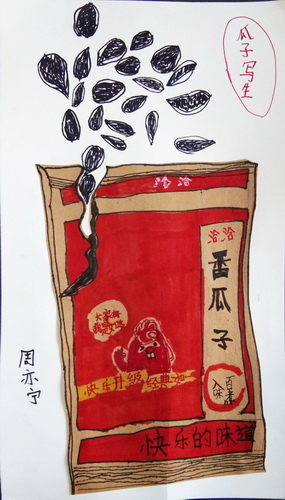 瓜子写生
洽洽
洽洽
香瓜子
大家好
快乐升级 经典如一
百煮
入味
快乐的味道
周亦宁